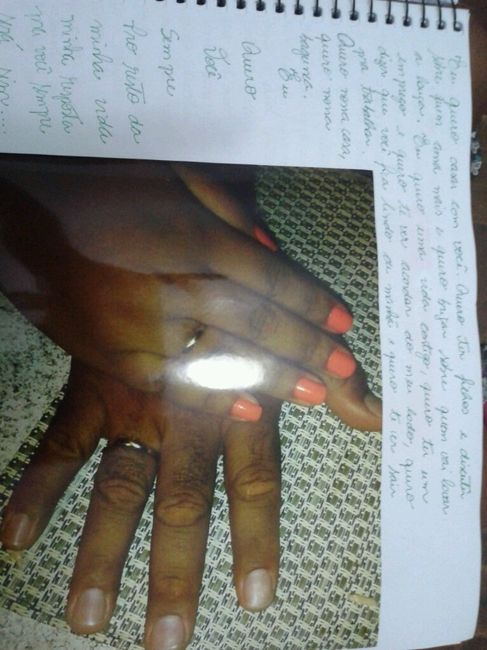 Eu quero casar com você. Quero ter filhos e discutir
sobre quem ama mais e quero brigar sobre quem vai lavar
a louça. Eu quero uma vida contigo, quero ter um
emprego e quero te ver acordar do meu lado, quero
dizer que você fica lindo manhã e quero te ver sair
pra trabalhar.
Quero nossa casa,
quero nossa
bagunça.
Eu
Quero
Você
Sempre
Pro resto da
minha vida
minha resposta
pra você sempre
será sim....